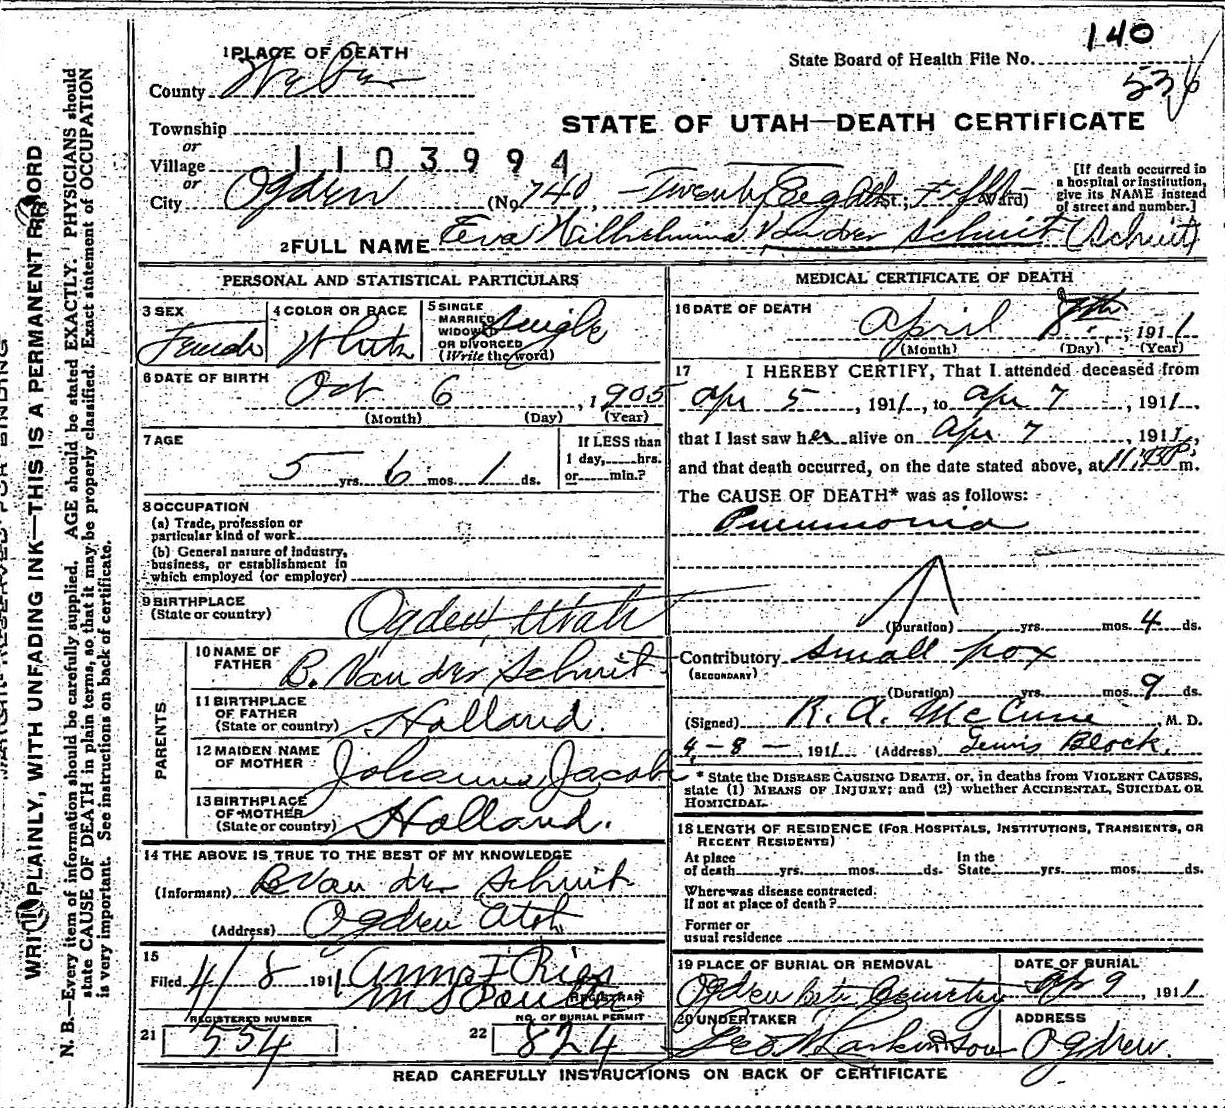 140
State Board of Health File No.
536
1 PLACE OF DEATH
County Weber
STATE OF UTAH—DEATH CERTIFICATE
Township
or
Village 1103994
or
City Ogden (No 740, Twenty Eighth St.; Fifth Ward)
[If death occurred in a hospital or institution, give its NAME instead of street and number.]
2 FULL NAME Eva Wilhelmina Vander Schuit (Schuit)
PERSONAL AND STATISTICAL PARTICULARS
3 SEX Female
4 COLOR OR RACE White
5 SINGLE MARRIED WIDOWED OR DIVORCED (Write the word) Single
6 DATE OF BIRTH Oct 6, 1905
(Month) (Day) (Year)
7 AGE 5 yrs. 6 mos. 1 ds.
If LESS than 1 day, hrs. or min.?
8 OCCUPATION
(a) Trade, profession or particular kind of work
(b) General nature of industry, business, or establishment in which employed (or employer)
9 BIRTHPLACE (State or country) Ogden, Utah
PARENTS
10 NAME OF FATHER B. Van der Schuit
11 BIRTHPLACE OF FATHER (State or country) Holland.
12 MAIDEN NAME OF MOTHER Johanna Jacob
13 BIRTHPLACE OF MOTHER (State or country) Holland.
14 THE ABOVE IS TRUE TO THE BEST OF MY KNOWLEDGE
(Informant) B Van der Schuit
(Address) Ogden Utah
15
Filed 4/8 1911 Anna F Ries
REGISTRAR
REGISTERED NUMBER
21 554
NO. OF BURIAL PERMIT
22 824
MEDICAL CERTIFICATE OF DEATH
16 DATE OF DEATH April 8th, 1911
(Month) (Day) (Year)
17 I HEREBY CERTIFY, That I attended deceased from
Apr 5, 1911, to Apr 7, 1911.
that I last saw her alive on Apr 7, 1911,
and that death occurred, on the date stated above, at m.
The CAUSE OF DEATH* was as follows:
Pneumonia
(Duration) yrs. mos. 4 ds.
Contributory (SECONDARY) Small pox
(Duration) yrs. mos. 9 ds.
(Signed) R. A. McCune, M. D.
4-8-1911 (Address) Lewis Block.
* State the DISEASE CAUSING DEATH, or, in deaths from VIOLENT CAUSES, state (1) MEANS OF INJURY; and (2) whether ACCIDENTAL, SUICIDAL OR HOMICIDAL.
18 LENGTH OF RESIDENCE (FOR HOSPITALS, INSTITUTIONS, TRANSIENTS, OR RECENT RESIDENTS)
At place of death yrs. mos. ds. In the State yrs. mos. ds.
Where was disease contracted. If not at place of death?
Former or usual residence
19 PLACE OF BURIAL OR REMOVAL Ogden City Cemetery
DATE OF BURIAL Ap 9, 1911
20 UNDERTAKER Geo W Larkin & Sons
ADDRESS Ogden.
READ CAREFULLY INSTRUCTIONS ON BACK OF CERTIFICATE
WRITE PLAINLY, WITH UNFADING INK—THIS IS A PERMANENT RECORD
N. B.—Every item of information should be carefully supplied. AGE should be stated EXACTLY. PHYSICIANS should
state CAUSE OF DEATH in plain terms, so that it may be properly classified. Exact statement of OCCUPATION
is very important. See instructions on back of certificate.